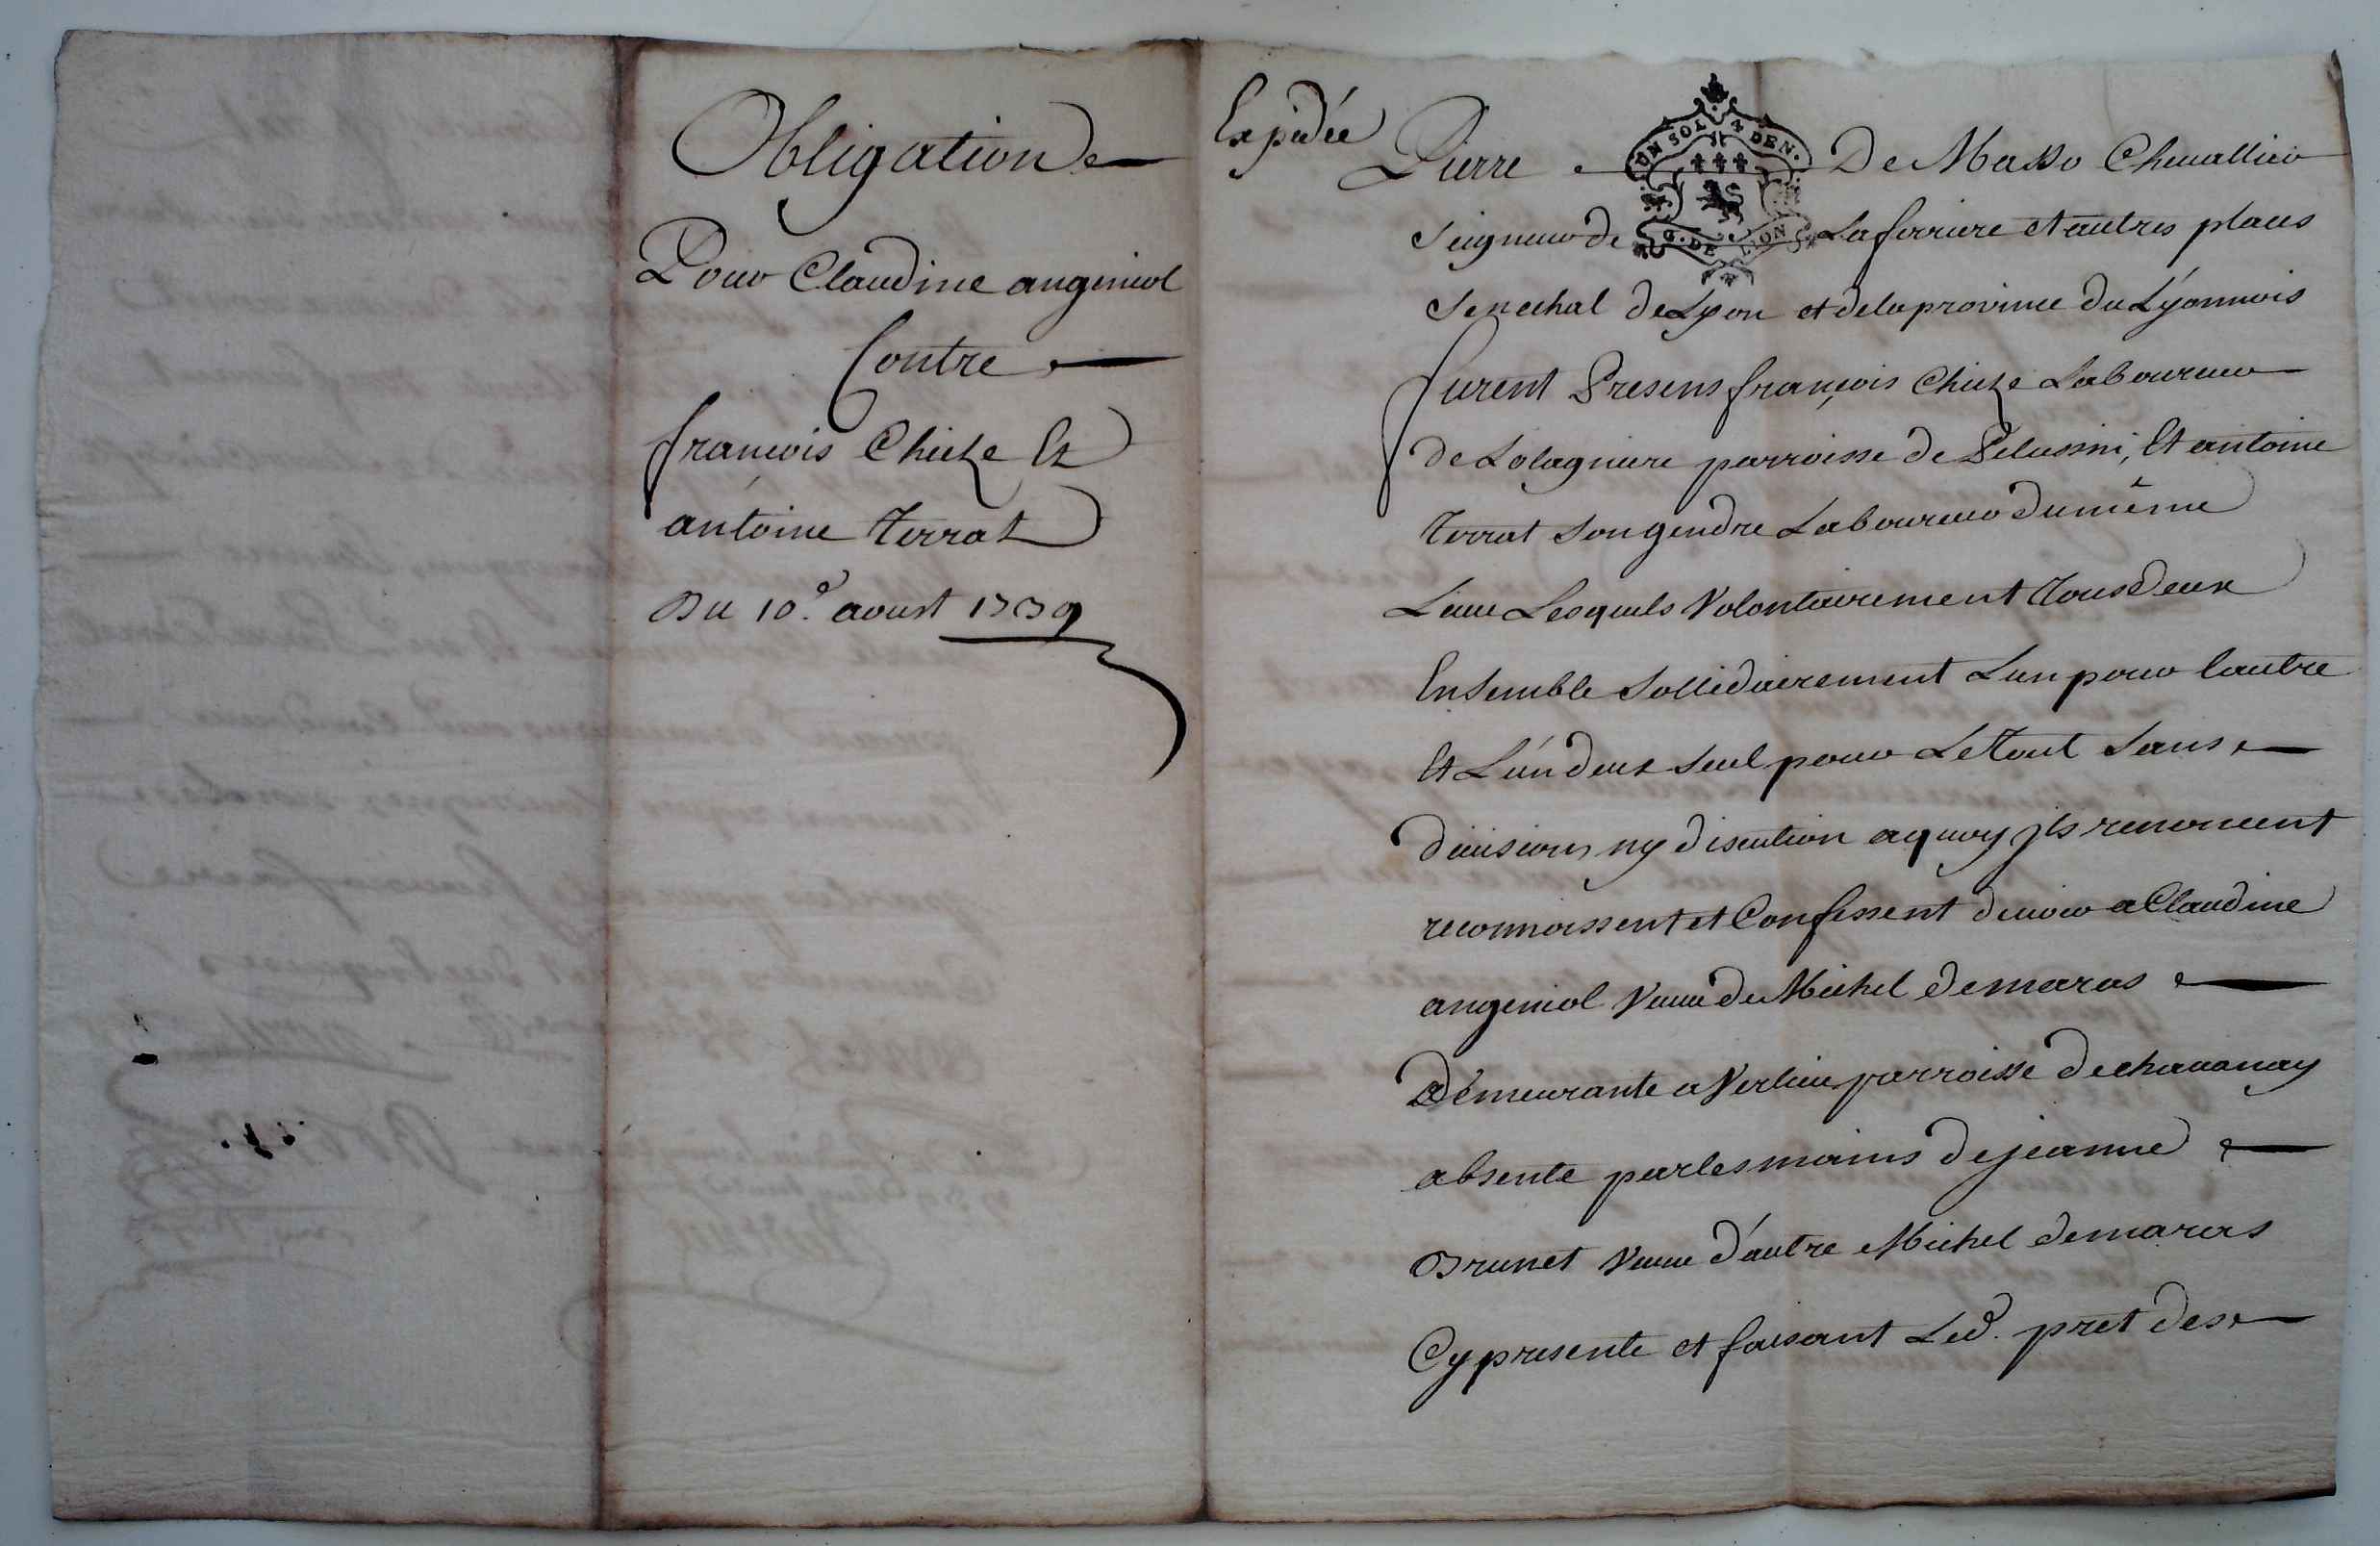 Obligation
Pour Claudine angeniol
Contre
françois Chieze Et
antoine Terrat
Du 10e. aoust 1739
Expediée
Pierre De Masso Chevallier
UN SOL. 4 DEN.
G. DE LION
Seigneur de Laferriere et autres places
Senechal de Lyon et de la province du Lyonnois
furent Presens françois Chieze Laboureur
de Lolagniere parroisse de Pelussin, Et antoine
Terrat Son gendre Laboureur du même
Lieu Lesquels Volontairement Tous Deux
Ensemble Sollidairement Lun pour lautre
Et Lun deux Seul pour Le Tout Sans
division ny discution a quoy jls renoncent
reconnoissent et Confessent devoir a Claudine
angeniol Veuve de Michel demaras
Demeurante a Verlieu parroisse de chavanay
absente par les mains de jeanne
Brunet Veuve d'autre Michel demaras
Cy presente et faisant Led. pret des